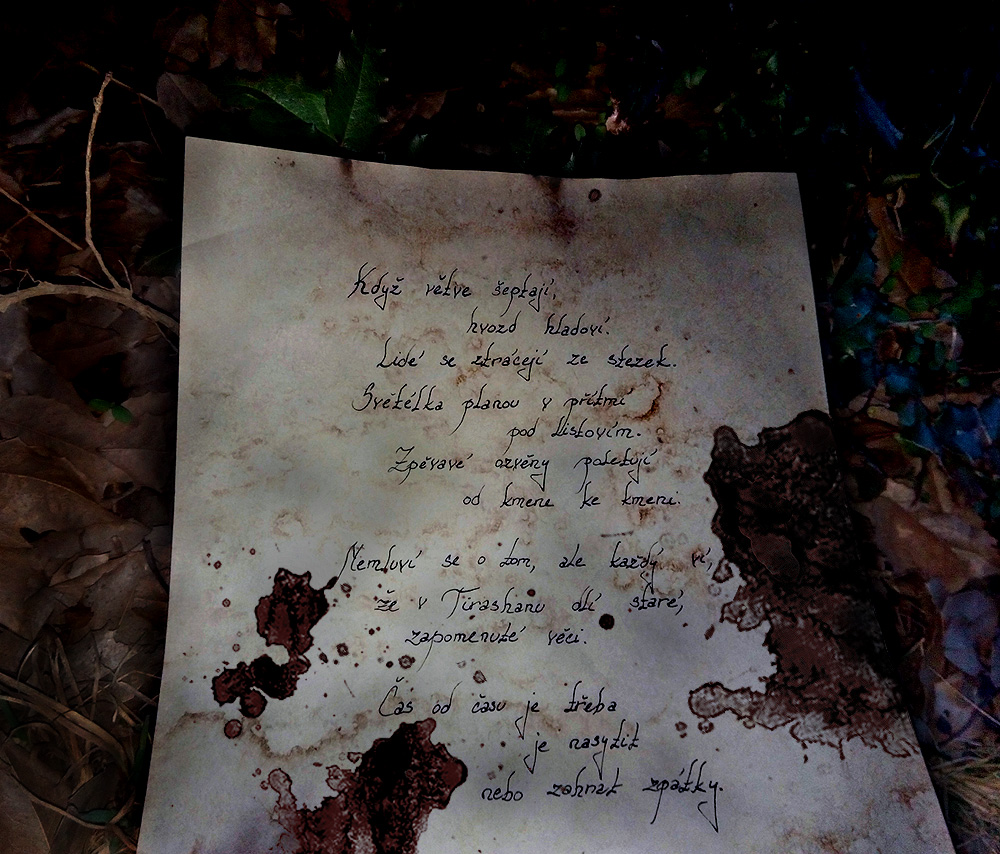 Když větve šeptají,
hvozd hladoví.
Lidé se ztrácejí ze stezek.
Světélka planou v přítmí
pod listovím.
Zpěvavé ozvěny poletují
od kmene ke kmeni.
Nemluví se o tom, ale každý ví,
že v Tirashanu dlí staré,
zapomenuté věci.
Čas od času je třeba
je nasytit
nebo zahnat zpátky.